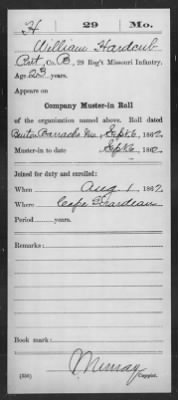 H 29 Mo.
William Hardcub
Pvt, Co. B, 29 Reg't Missouri Infantry.
Age 23 years.
Appears on
Company Muster-in Roll
of the organization named above. Roll dated
Benton Barracks Mo, Sept 6, 1862.
Muster-in to date Sept 6, 1862.
Joined for duty and enrolled:
When Aug 1, 1862
Where Cape Girardeau
Period years.
Remarks:
Book mark:
Murray
(356) Copyist.